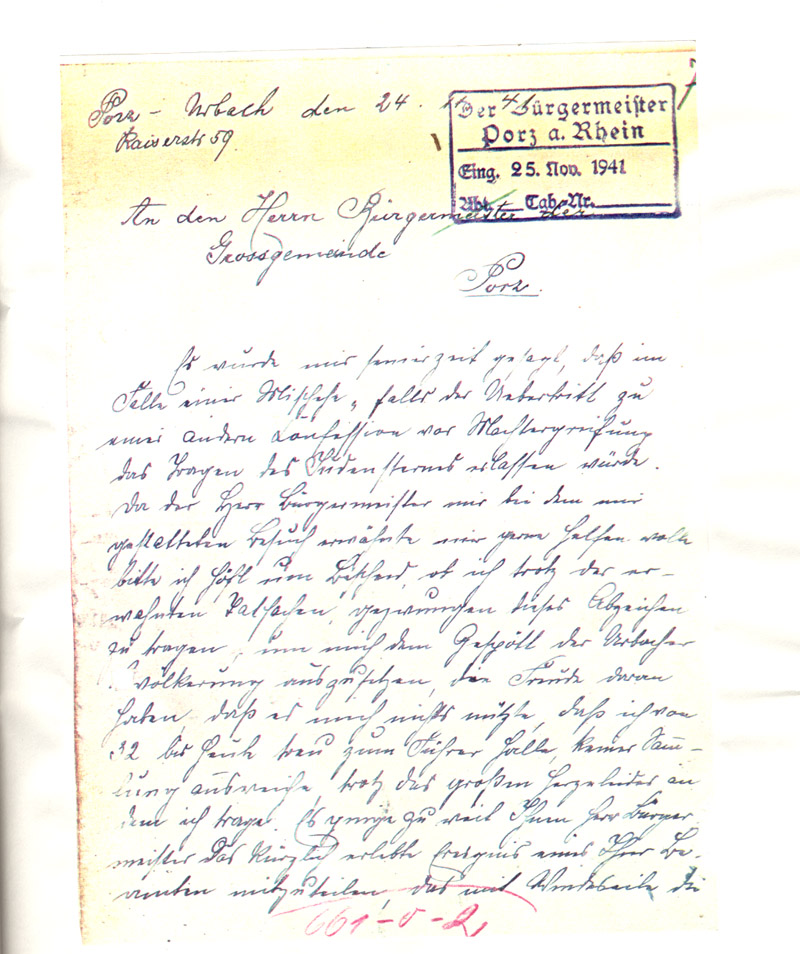 Porz - Urbach den 24. 11. 41
Kaiserstr 59.
Der Bürgermeister
Porz a. Rhein
Eing. 25. Nov. 1941
Abt. Tgb.-Nr.
An den Herrn Bürgermeister der
Grossgemeinde
Porz.
Es wurde mir seinerzeit gesagt, daß im
Falle einer Mischehe, falls der Uebertritt zu
einer andern Konfession vor Machtergreifung
das Tragen des Judensternes erlassen würde.
Da der Herr Bürgermeister mir bei dem mir
gestatteten Besuch erwähnte mir gerne helfen wolle
bitte ich höfl um Bescheid, ob ich trotz der er-
wähnten Tatsachen, gezwungen dieses Abzeichen
zu tragen, um mich dem Gespött der Urbacher
völkerung auszusetzen, die Freude daran
haben, daß es mich nichts nützte, daß ich von
32 bis heute treu zum Führer halte, keiner Samm-
lung ausweiche, trotz des großen Herzeleides an
dem ich trage. Es ginge zu weit Ihnen Herr Bürger
meister das kürzlich erlebte Ereignis eines Ihrer Be-
amten mitzuteilen, das mit Windeseile die
661-0-2